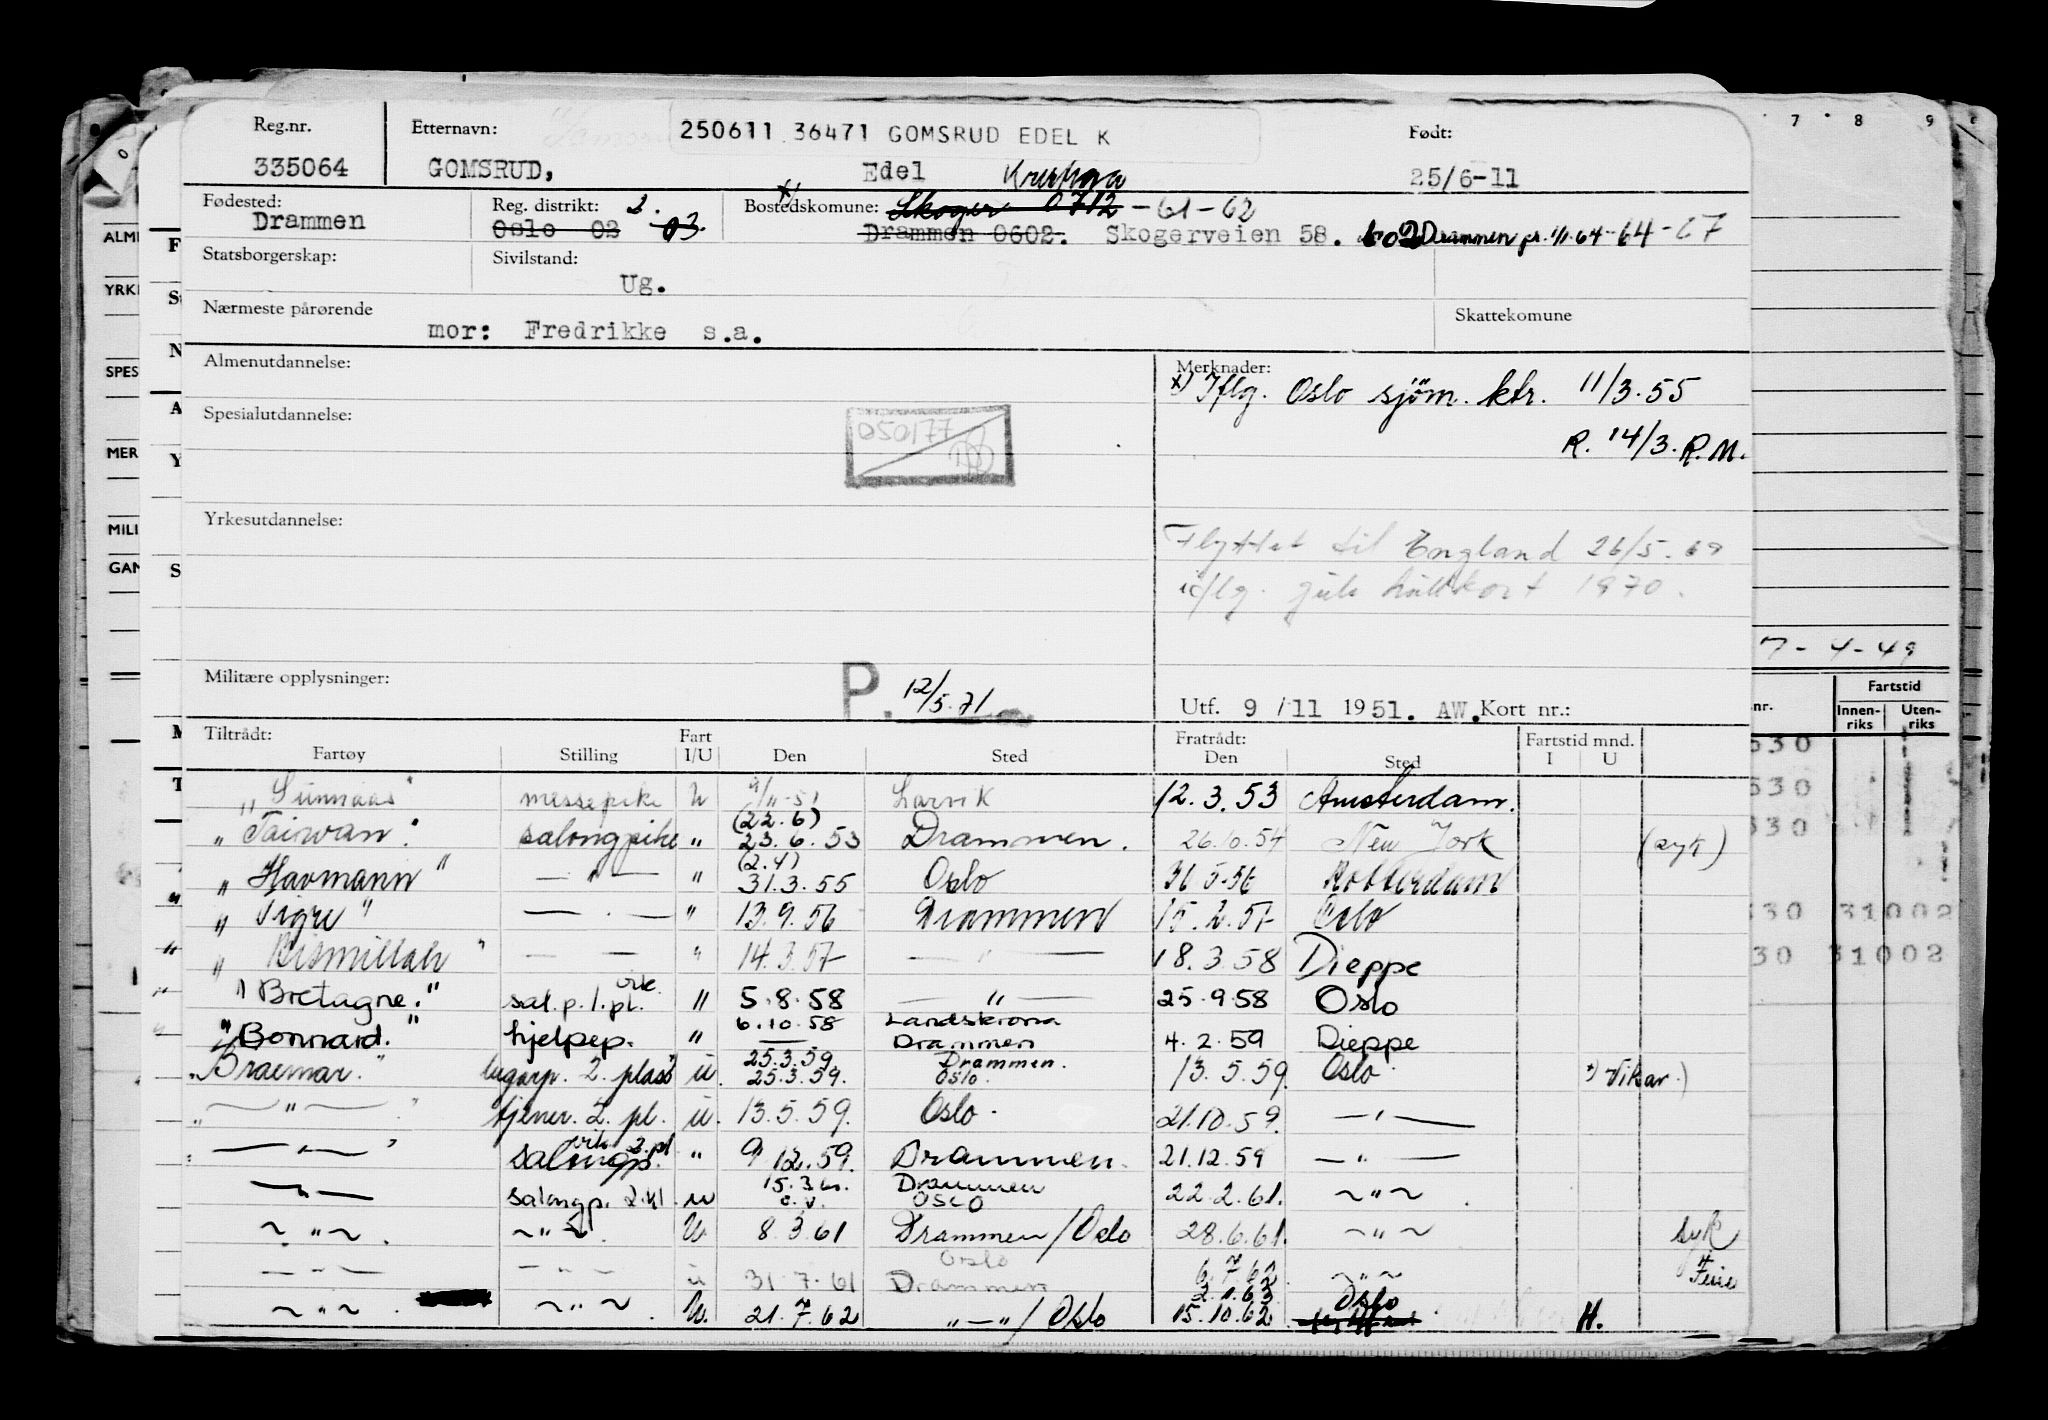 Reg.nr. Etternavn: 250611 36471 GOMSRUD EDEL K Født:
335064 GOMSRUD, Edel 25/6-11
Fødested: Reg. distrikt: 2. Bostedskomune: Skoger 0712 - 61 - 62
Drammen Oslo 02 03 Drammen 0602. Skogerveien 58. 602 Drammen pr. 1/1-64 - 64 - 67
Statsborgerskap: Sivilstand:
Ug.
Nærmeste pårørende Skattekomune
mor: Fredrikke s.a.
Almenutdannelse: Merknader:
x) Iflg. Oslo sjöm. ktr. 11/3.55
Spesialutdannelse: 050177
R. 14/3. R.M.
Yrkesutdannelse:
Flyttet til England 26/5.69
iflg. jule 1970.
Militære opplysninger: P. 12/5.71
Utf. 9 / 11 1951. AW. Kort nr.:
Tiltrådt: Fart Fratrådt: Fartstid mnd.
Fartøy Stilling I/U Den Sted Den Sted I U
"Sunnaas" messepike U 9/11-51 Larvik 12.3.53 Amsterdam.
"Taiwan". salongpike " (22.6) 23.6.53 Drammen. 26.10.54 New York (syk)
"Havmann" — " — " (2.4) 31.3.55 Oslo 31.5.56 Rotterdam
"Tigre" — . — " 13.9.56 Drammen 15.2.57 Oslo
"Bismillah" — — " 14.3.57 — " — 18.3.58 Dieppe
"Bretagne." sal.p. 1. pl. vik. " 5.8.58 — " — 25.9.58 Oslo
"Bonnard." hjelpep. " 6.10.58 Landskrona Drammen 4.2.59 Dieppe
"Braemar." lugarp. 2. plass u. 25.3.59 Drammen. 13.5.59. Oslo. Vikar.)
25.3.59. Oslo.
— " — tjener. 2. pl. u. 13.5.59. Oslo. 21.10.59. — " —
— " — salongp. vik. 2.pl " 9.12.59. Drammen. 21.12.59 — " —
— " — salongp. 2.kl. u 15.3.60. Drammen 22.2.61. ~ " ~
OSLO
~ " ~ . ~ " ~ . U. 8.3.61 Drammen/Oslo 28.6.61. ~ " ~ syk
Oslo
— " — — " — u 31.7.61 Drammen 6.7.62 ~ " ~ Ferie
2.1.63 Oslo
~ " ~ . ~ " ~ U. 21.7.62 " — " / Oslo 15.10.62 H.
7 8 9
ALM
YRK
SPES
MER
MILI
GAN
7-4-49
Fartstid
nr. Innen-riks Uten-riks
530
530
530
530 31002
530 31002